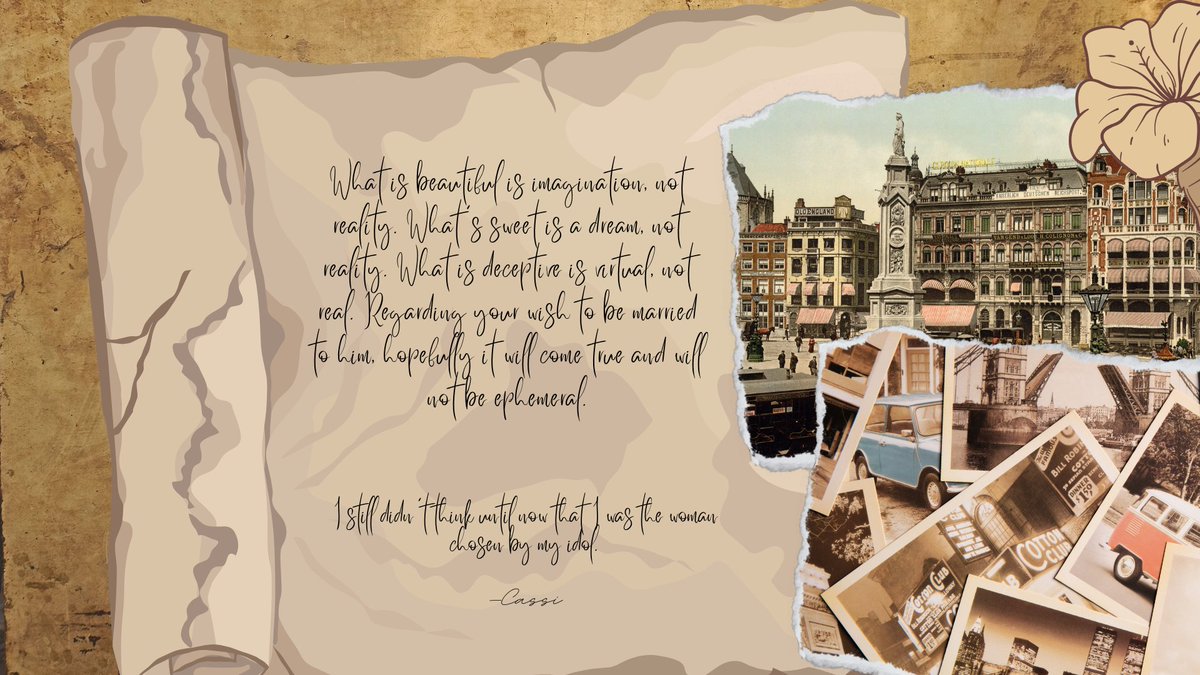 What is beautiful is imagination, not
reality. What's sweet is a dream, not
reality. What is deceptive is virtual, not
real. Regarding your wish to be married
to him, hopefully it will come true and will
not be ephemeral.
I still didn't think until now that I was the woman
chosen by my idol.
-Cassi
OLD ENGLAND
BILL ROB
COTTO
DINNER
$1.50
COTTON
CLUB
COTTON CLUB